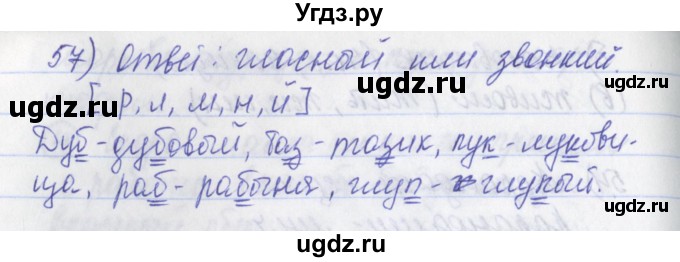 Угдз.ру
57) Ответ: гласный или звонкий.
[ р, л, м, н, й ]
Дуб - дубовый, таз - тазик, лук - лукови-
ца, раб - рабыня, глуп - глупый.
ugdz.ru ugdz.ru
ugdz.ru ugdz.ru
ugdz.ru ugdz.ru
ugdz.ru